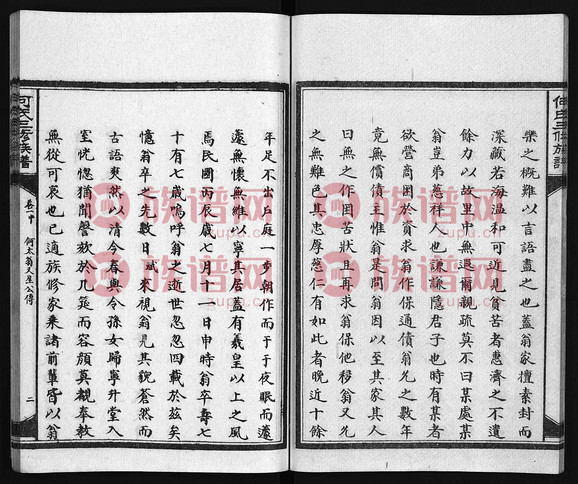 何氏三修族譜
樂之概難以言語盡之也蓋翁家擅素封而
深藏若海溫和可近見貧苦者惠濟之不遺
餘力以故里中無遐邇親疏莫不曰某處某
翁豈弟慈祥人也謙謙隱君子也時有某者
欲營商困於貧求翁作保通債翁允之數年
竟無償債主惟翁是問翁因以至其家其人
曰無之作困苦狀且再求翁保他移翁又允
之無難色其忠厚慈仁有如此者晚近十餘
年足不出戶庭一步朝作而于于夜眠而蘧
蘧無懷無雖以寧其居蓋有羲皇以上之風
焉民國丙辰歲七月十一日申時翁卒壽七
十有七歲嗚呼翁之逝世忽忽四載於茲矣
憶翁卒之先數日斌來視翁見其貌蒼然而
古語爽然以清今春與令孫女歸寧升堂入
室恍惚猶聞謦欬於几筵而容顏莫親奉教
無從可哀也已適族修家乘諸前輩皆以翁
何氏三修族譜
卷二十
何太翁又星公傳
二
族谱网